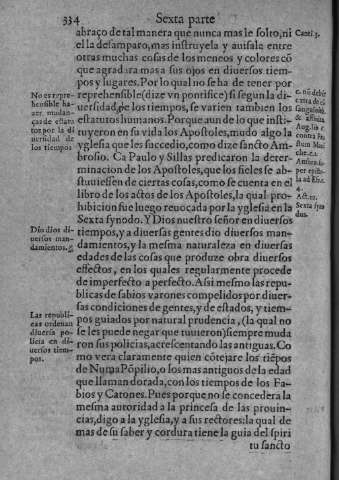 334
Sexta parte
abraço de tal manera que nunca mas le solto, ni
el la desamparo, mas instruyela y auisala entre
otras muchas cosas de los meneos y colores cõ
que agradara mas a sus ojos en diuersos tiem-
pos y lugares. Por lo qual no se ha de tener por
reprehensible (dize vn pontifice) si segun la di-
uersidad de los tiempos, se varien tambien los
estatutos humanos. Porque aun de lo que insti-
tuyeron en su vida los Apostoles, mudo algo la
yglesia que les succedio, como dize sancto Am-
brosio. Ca Paulo y Sillas predicaron la deter-
minacion de los Apostoles, que los fieles se abs-
tuuiessen de ciertas cosas, como se cuenta en el
libro de los actos de los Apostoles, la qual pro-
hibicion fue luego reuocada por la yglesia en la
Sexta synodo. Y Dios nuestro señor en diuersos
tiempos, y a diuersas gentes dio diuersos man-
damientos, y la mesma naturaleza en diuersas
edades de las cosas que produze obra diuersos
effectos, en los quales regularmente procede
de imperfecto a perfecto. Asi mesmo las repu-
blicas de sabios varones compelidos por diuer-
sas condiciones de gentes, y de estados, y tiem-
pos guiados por natural prudencia, (la qual no
se les puede negar que tuuieron) siempre muda
ron sus policias, acrescentando las antiguas. Co
mo vera claramente quien cotejare los tiẽpos
de Numa Põpilio, o los mas antiguos de la edad
que llaman dorada, con los tiempos de los Fa-
bios y Catones. Pues porque no se concedera la
mesma autoridad a la princesa de las prouin-
cias, digo a la yglesia, y a sus rectores: la qual de
mas de su saber y cordura tiene la guia del spiri
tu sancto
No es repre
hensible ha-
zer mudan-
ças de estatu
tos por la di
uersidad de
los tiempos
Dio dios di-
uersos man-
damientos.
Las republi-
cas ordenan
diuersa po-
licia en di-
uersos tiem-
pos.
Canti.3.
c. non debet
& affinit.
Aug.
contra Fa-
4.
Act.15.
Sexta syno
dus.